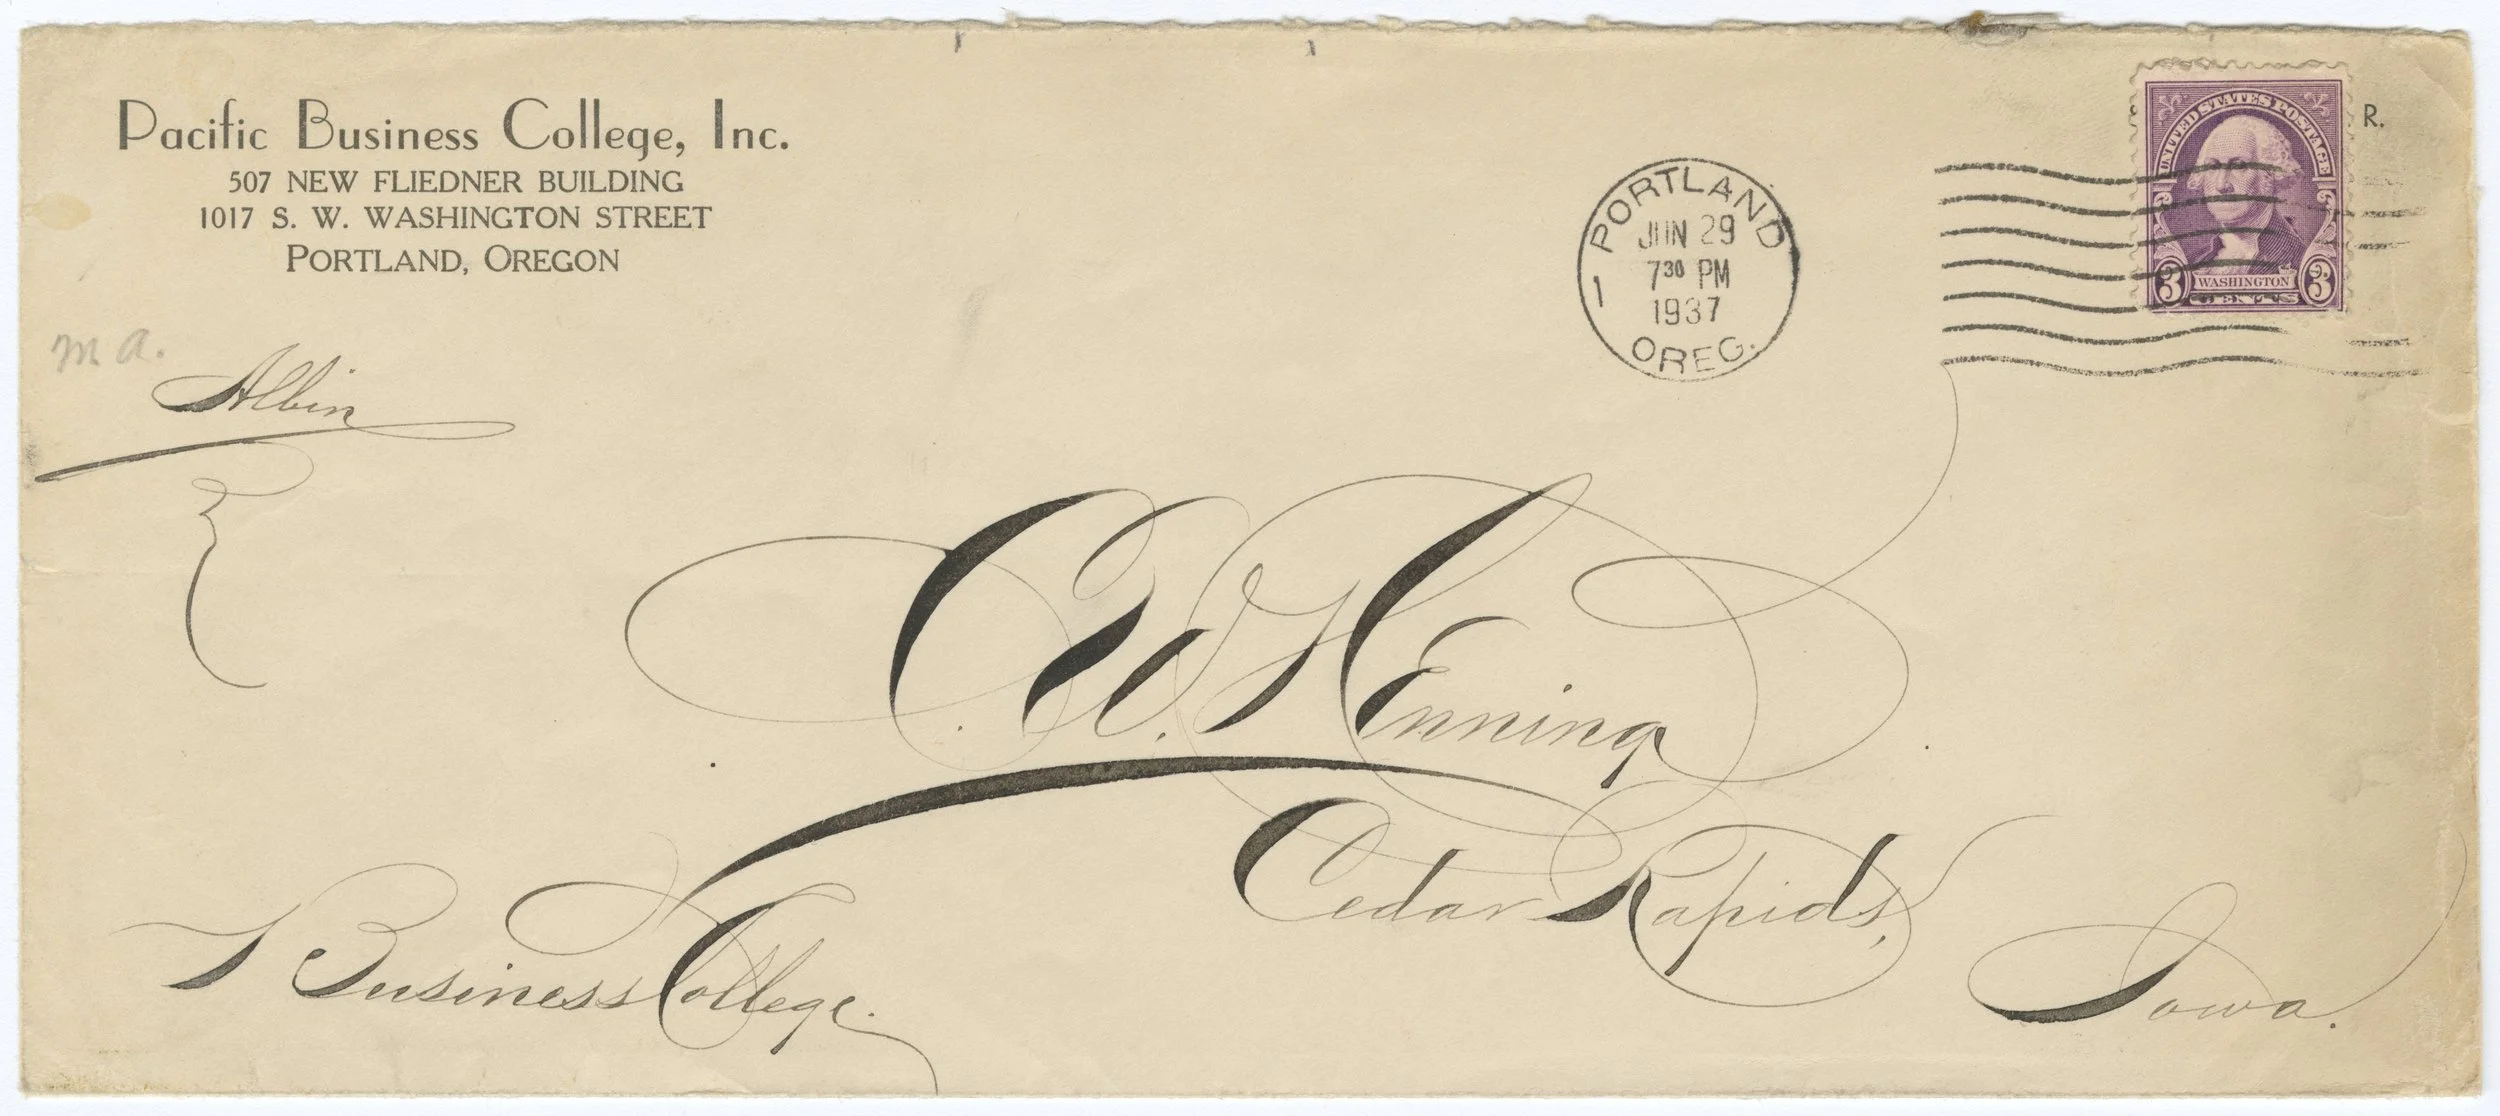 Pacific Business College, Inc.
507 NEW FLIEDNER BUILDING
1017 S. W. WASHINGTON STREET
PORTLAND, OREGON
R.
UNITED STATES POSTAGE
3 WASHINGTON 3
CENTS
PORTLAND
JUN 29
7 30 PM
1937
1
OREG.
m a.
Albin
C. W. Henning
Cedar Rapids,
Iowa.
Business College.